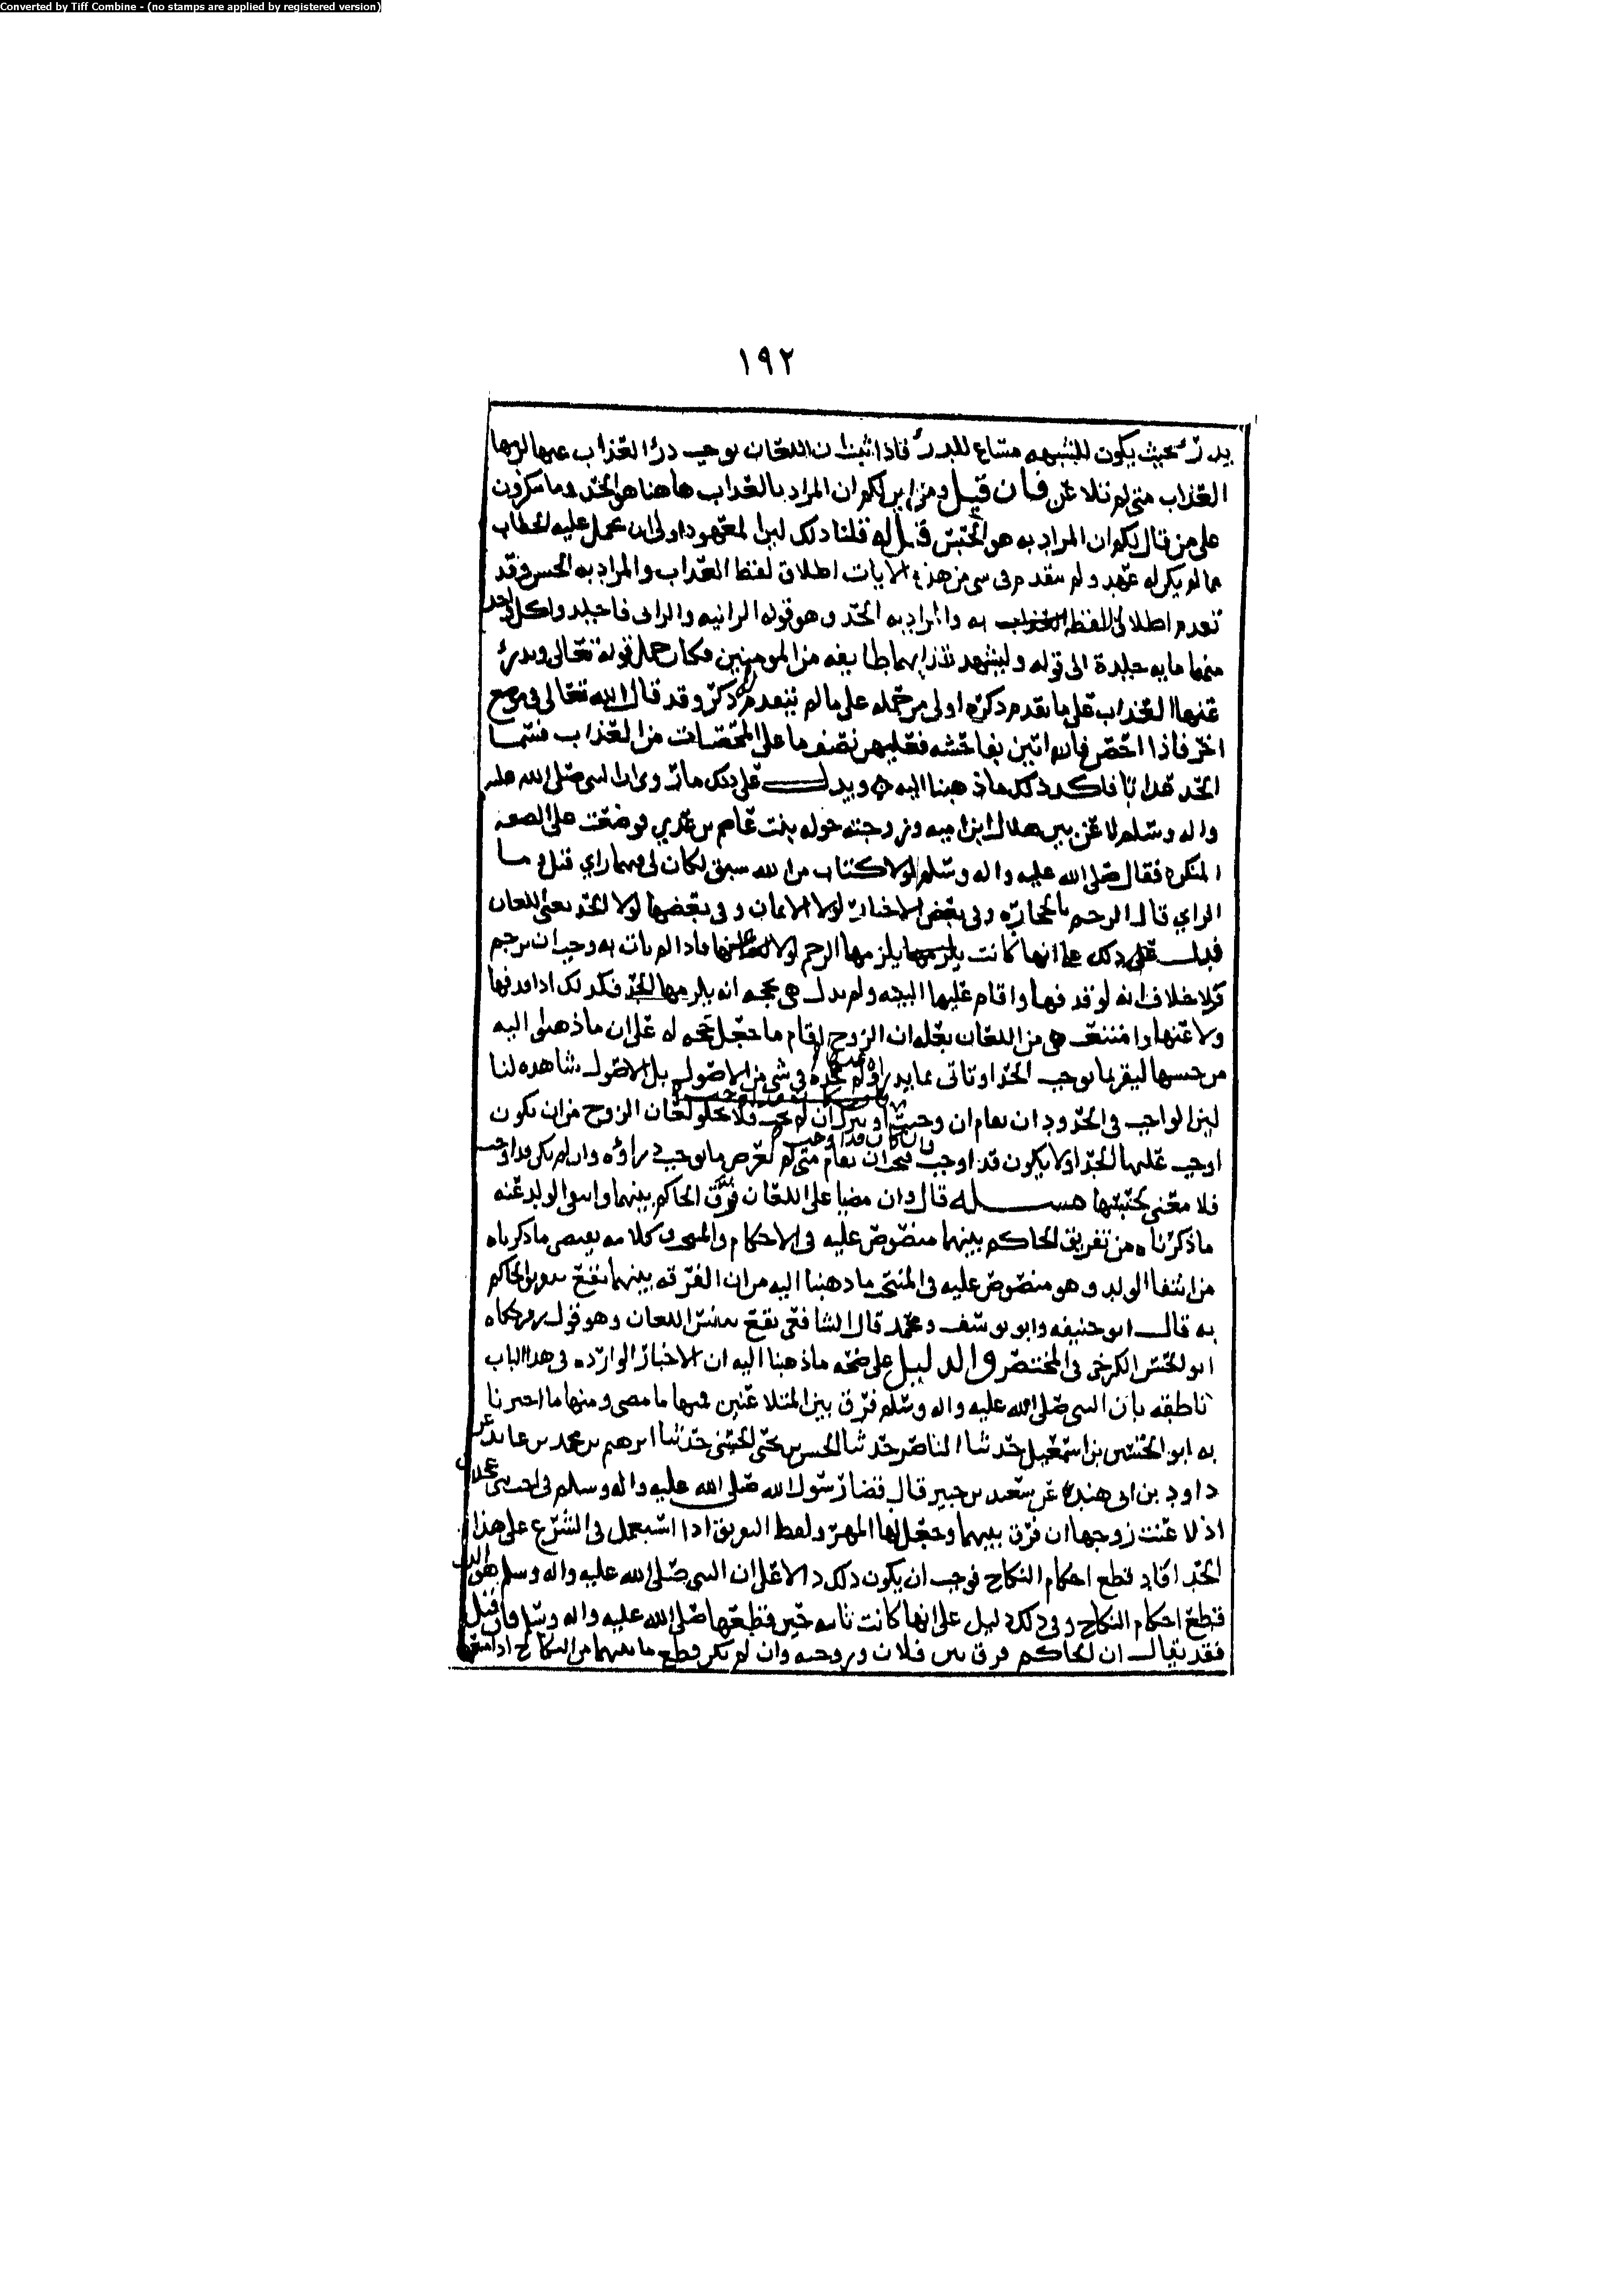 Converted by Tiff Combine - (no stamps are applied by registered version)
١٩٢
يدرئ بحيث يكون للشبهه مساغ للدرئ فاذا ثبت ان اللعان يوجب درء العذاب عنها لزمها
العذاب متى لم تلاعن فان قيل ومن اين لكم ان المراد بالعذاب هاهنا هو الحد وما تنكرون
على من قال لكم ان المراد به هو الحبس قيل له قلنا ذلك لان المعهود اولى ان يحمل عليه الخطاب
مما لم يكن له عهد ولم يتقدم في شي من هذه الايات اطلاق لفظ العذاب والمراد به الحبس وقد
تقدم اطلاق لفظ العذاب به والمراد به الحد وهو قوله الزانيه والزاني فاجلدوا كل واحد
منهما مايه جلدة الى قوله وليشهد عذابهما طايفه من المومنين فكان حمل قوله تعالى ويدرؤ
عنها العذاب على ما تقدم ذكره اولى من حمله على ما لم يتقدم ذكره وقد قال الله تعالى في موضع
اخر فاذا احصن فان اتين بفاحشه فعليهن نصف ما على المحصنات من العذاب فسما
الحد عذابا فاكد ذلك ما ذهبنا اليه ويدل على ذلك ما روي ان النبي صلى الله عليه
واله وسلم لاعن بين هلال ابن اميه وزوجته خوله بنت عاصم بن عدي فوضعت على الصفه
المنكره فقال صلى الله عليه واله وسلم لولا كتاب من الله سبق لكان لي فيهما راي قيل وما
الراي قال الرجم بالحجاره وفي بعض الاخبار لولا الايمان وفي بعضها لولا الحد يعني اللعان
فدل على ذلك على انها كانت يلزمها الرجم لولا لعانها فاذا لم يات به وجب ان ترجم
ولا خلاف انه لو قذفها واقام عليها البينه ولم تدل هي بحجه انه يلزمها الحد فكذلك اذا قذفها
ولاعنها وامتنعت هي من اللعان بعله ان الزوج اقام ما جعل حجه له على ان ما ذهبوا اليه
من حبسها لتقر بما يوجب الحد او تاتي بما يدراه لم نجده في شي من الاصول بل الاصول شاهده لنا
لان الواجب في الحدود ان تقام ان وجبت او تترك ان لم تجب فلا يخلو لعان الزوج من ان يكون
اوجب عليها الحد او لا يكون قد اوجب فان كان قد اوجب فيجب ان تقام متى لم يعرض ما يوجب دراؤه وان لم يكن قد اوجب
فلا معنى لحبسها مسله قال وان مضيا على اللعان فرق الحاكم بينهما وانتفى الولد عنه
ما ذكرناه من تفريق الحاكم بينهما منصوص عليه في الاحكام والمنتخب وكلامه يقتضي ما ذكرناه
من انتفا الولد وهو منصوص عليه في المنتخب ما ذهبنا اليه من ان الفرقه بينهما تقع بتفريق الحاكم
به قال ابو حنيفه وابو يوسف ومحمد قال الشافعي تقع بنفس اللعان وهو قول زفر حكاه
ابو الحسن الكرخي في المختصر والدليل على صحه ما ذهبنا اليه ان الاخبار الوارده في هذا الباب
ناطقه بان النبي صلى الله عليه واله وسلم فرق بين المتلاعنين فمنها ما مضى ومنها ما اخبرنا
به ابو الحسين بن اسمعيل حدثنا الناصر حدثنا الحسن بن يحيى الحسيني حدثنا ابرهيم بن محمد بن عن
داود بن ابي هند عن سعيد بن جبير قال قضا رسول الله صلى الله عليه واله وسلم في اخت بني عجلان
اذ لاعنت زوجها ان فرق بينهما وجعل لها المهر ولفظ التفريق اذا استعمل في الشرع على هذا
الحد افاد قطع احكام النكاح فوجب ان يكون ذلك دالا على ان النبي صلى الله عليه واله وسلم هو الذي
قطع احكام النكاح وفي ذلك دليل على انها كانت ثابته حين قطعها صلى الله عليه واله وسلم فان قيل
فقد يقال ان الحاكم فرق بين فلان وزوجته وان لم يكن قطع ما بينهما من النكاح اذا